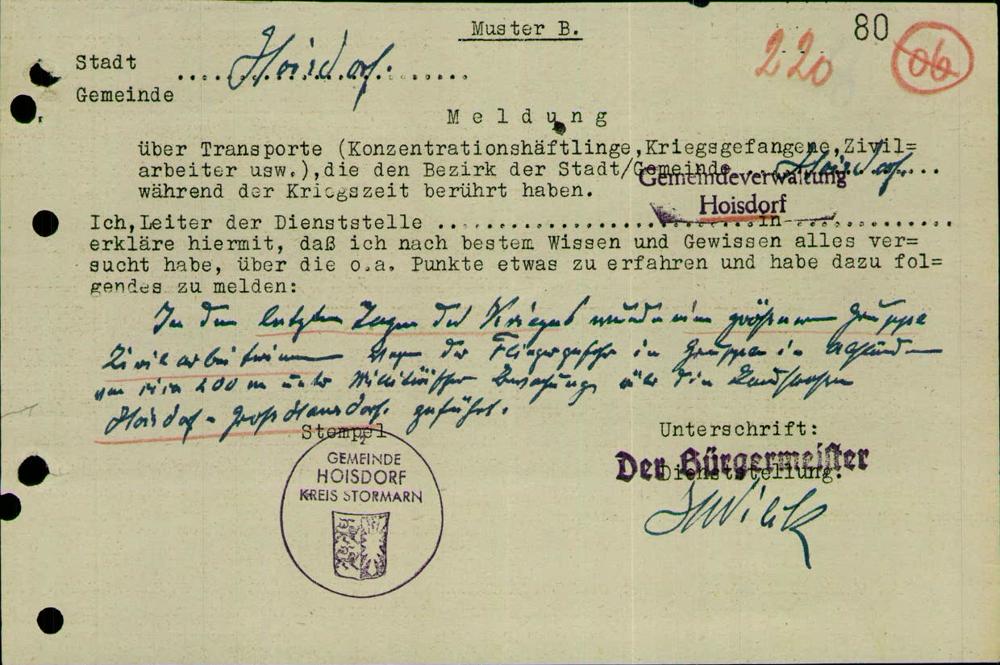 Muster B.
80
220
06
Stadt
Hoisdorf.
Gemeinde
Meldung
über Transporte (Konzentrationshäftlinge,Kriegsgefangene,Zivil=
arbeiter usw.),die den Bezirk der Stadt/Gemeinde...Hoisdorf...
während der Kriegszeit berührt haben.
Gemeindeverwaltung
Hoisdorf
Ich,Leiter der Dienststelle ........................in.............
erkläre hiermit, daß ich nach bestem Wissen und Gewissen alles ver=
sucht habe, über die o.a. Punkte etwas zu erfahren und habe dazu fol=
gendes zu melden:
In den letzten Tagen des Krieges wurde eine größere Gruppe
Zivilarbeiterinnen wegen der Fliegergefahr in Gruppen in Abständen
von circa 200 m unter Militärischer Bewachung über die Landstrassen
Hoisdorf - Großhansdorf. geführt.
Stempel
Unterschrift:
Der Bürgermeister
Dienststellung:
GEMEINDE
HOISDORF
KREIS STORMARN